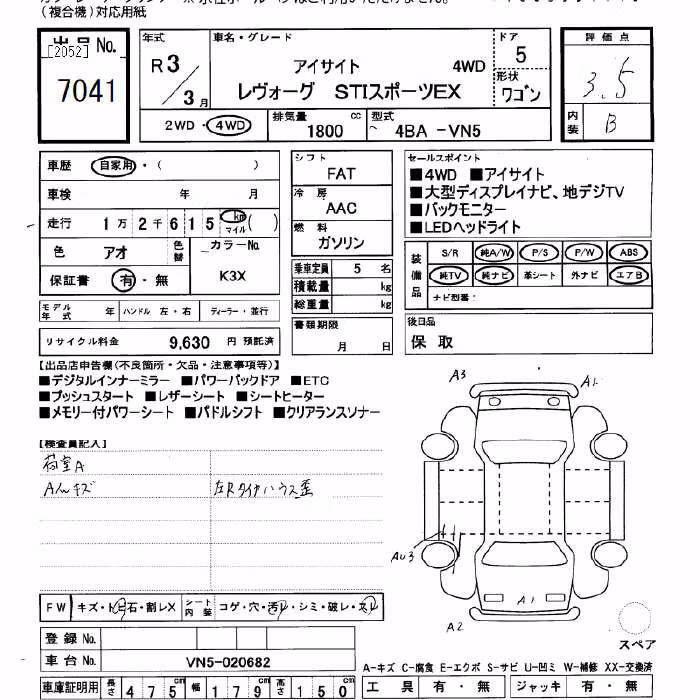 (複合機)対応用紙
出品 No.
[2052]
7041
年式 車名・グレード ドア 評価点
R3 アイサイト 4WD 5 3.5
/3月 レヴォーグ STIスポーツEX 形状 ワゴン
2WD・4WD 排気量 1800 cc 型式 4BA -VN5 内装 B
車歴 自家用・( )
車検 年 月
走行 1万2千615 km マイル ( )
色 アオ 色替 カラーNo. K3X
保証書 有・無
モデル年式 年 ハンドル 左・右 ディーラー・並行
リサイクル料金 9,630 円 預託済
シフト
FAT
冷房
AAC
燃料
ガソリン
乗車定員 5 名
積載量 kg
総重量 kg
書類期限
月 日
セールスポイント
■4WD ■アイサイト
■大型ディスプレイナビ、地デジTV
■バックモニター
■LEDヘッドライト
装備品 S/R 純A/W P/S P/W ABS
純TV 純ナビ 革シート 外ナビ エアB
ナビ型番:
後日品
保 取
【出品店申告欄(不良箇所・欠品・注意事項等)】
■デジタルインナーミラー ■パワーバックドア ■ETC
■プッシュスタート ■レザーシート ■シートヒーター
■メモリー付パワーシート ■パドルシフト ■クリアランスソナー
【検査員記入】
荷室A
Aんキズ 左Rタイヤハウス歪
A3 A1
AU3
A1
A2
スペア
FW キズ・ト石・割レX シート内装 コゲ・穴・汚レ・シミ・破レ・スレ
登録 No.
車台 No. VN5-020682
A-キズ C-腐食 E-エクボ S-サビ U-凹ミ W-補修 XX-交換済
車庫証明用 長さ 475 cm 幅 179 cm 高さ 150 cm 工具 有・無 ジャッキ 有・無